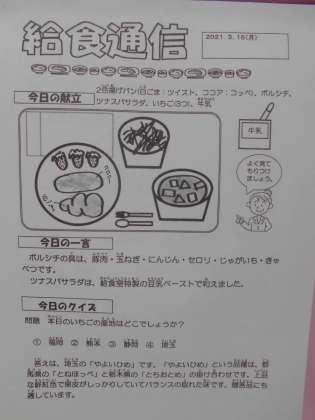 給食通信
2021. 3. 15(月)
今日の献立
2色揚げパン(白ごま:ツイスト、ココア:コッペ)、ボルシチ、
ツナスパサラダ、いちご(3つ)、牛乳
牛乳
よく見て
もりつけ
ましょう。
今日の一言
ボルシチの具は、豚肉・玉ねぎ・にんじん・セロリ・じゃがいも・きゃ
べつです。
ツナスパサラダは、給食室特製の豆乳ベーストで和えました。
今日のクイズ
問題 本日のいちごの産地はどこでしょうか?
① 福岡 ② 熊本 ③ 静岡 ④ 埼玉
答えは、埼玉の「やよいひめ」です。「やよいひめ」という品種は、群
馬県の「とねほっぺ」と栃木県の「とちおとめ」の掛け合わせです。上品
な鮮紅色で果皮がしっかりしていてバランスの取れた味です。贈答品にも
適しています。